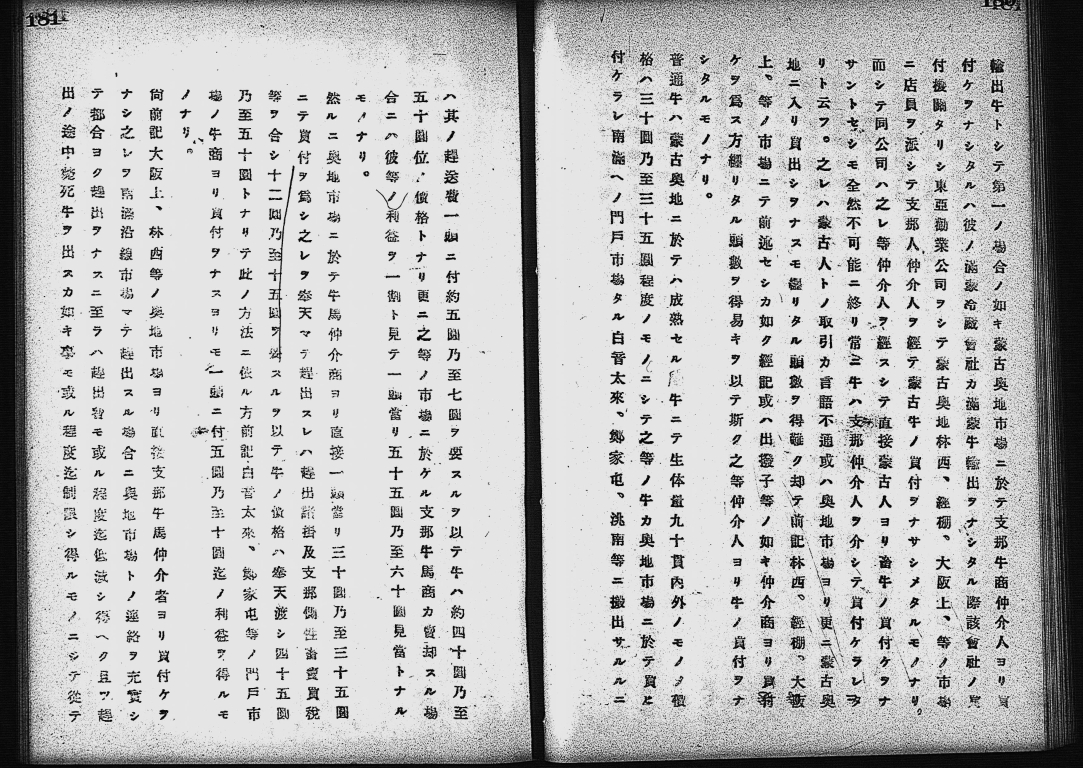 輸出牛トシテ第一ノ場合ノ如キ蒙古奧地市場ニ於テ支那牛商仲介人ヨリ買
付ケヲナシタルハ彼ノ滿蒙冷藏會社カ滿蒙牛輸出ヲナシタル際該會社ノ買
付機關タリシ東亞勸業公司ヲシテ蒙古奧地林西、經棚、大阪上、等ノ市場
ニ店員ヲ派シテ支那人仲介人ヲ經テ蒙古牛ノ買付ヲナサシメタルモノナリ。
而シテ同公司ハ之レ等仲介人ヲ經スシテ直接蒙古人ヨリ畜牛ノ買付ケヲナ
サントセシモ全然不可能ニ終リ常ニ牛ハ支那仲介人ヲ介シテ買付ケラレタ
リト云フ。之レハ蒙古人トノ取引カ言語不通或ハ奧地市場ヨリ更ニ蒙古奧
地ニ入リ買出シヲナスモ極リタル頭數ヲ得難ク却テ前記林西、經棚、大阪
上、等ノ市場ニテ前述セシカ如ク經記或ハ出撥子等ノ如キ仲介商ヨリ買付
ケヲ爲ス方纒リタル頭數ヲ得易キヲ以テ斯ク之等仲介人ヨリ牛ノ買付ヲナ
シタルモノナリ。
普通牛ハ蒙古奧地ニ於テハ成熟セル牛ニテ生体量九十貫内外ノモノノ價
格ハ三十圓乃至三十五圓程度ノモノニシテ之等ノ牛カ奧地市場ニ於テ買ヒ
付ケラレ南滿ヘノ門戸市場タル白音太來、鄭家屯、洮南等ニ搬出サルルニ
181
ハ其ノ趕送費一頭ニ付約五圓乃至七圓ヲ要スルヲ以テ牛ハ約四十圓乃至
五十圓位ノ價格トナリ更ニ之等ノ市場ニ於ケル支那牛馬商カ賣却スル場
合ニハ彼等ノ利益ヲ一割ト見テ一頭當リ五十五圓乃至六十圓見當トナル
モノナリ。
然ルニ奧地市場ニ於テ牛馬仲介商ヨリ直接一頭當リ三十圓乃至三十五圓
ニテ買付ヲ爲シ之レヲ奉天マテ趕出スレハ趕出諸掛及支那側牲畜賣買稅
等ヲ合シ十二圓乃至十五圓ヲ要スルヲ以テ牛ノ價格ハ奉天渡シ四十五圓
乃至五十圓トナリテ此ノ方法ニ依ル方前記白音太來、鄭家屯等ノ門戸市
場ノ牛商ヨリ買付ヲナスヨリモ一頭ニ付五圓乃至十圓迄ノ利益ヲ得ルモ
ノナリ。
尙前記大阪上、林西等ノ奧地市場ヨリ直接支那牛馬仲介者ヨリ買付ケヲ
ナシ之レヲ南滿沿線市場マテ趕出スル場合ニ奧地市場トノ連絡ヲ充實シ
テ都合ヨク趕出ヲナスニ至ラハ趕出費モ或ル程度迄低減シ得ヘク且ツ趕
出ノ途中斃死牛ヲ出スカ如キ事モ或ル程度迄制限シ得ルモノニシテ從テ